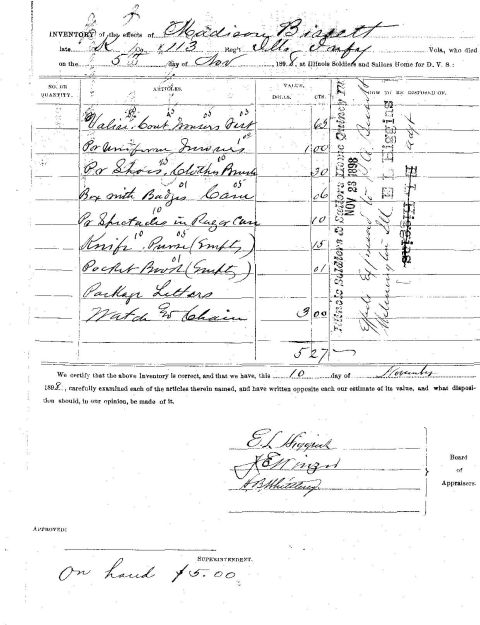 INVENTORY of the effects of Madison Bissett
late K Co. 113 Reg't Ills Infty Vols., who died
on the 5th day of Nov 1898, at Illinois Soldiers and Sailors Home for D. V. S :
NO. OR QUANTITY. ARTICLES. VALUE. DOLLS. CTS. HOW TO BE DISPOSED OF.
Valise, Coat Trousers Vest 65
Pr Uniform Trousers 1.00
Pr Shoes, Clothes Brush 30
Box with Badges Cane 06
Pr Spectacles in Razor Case 10
Knife, Purse (Empty) 15
Pocket Book (Empty) 01
Package Letters
Watch & Chain 3 00
5 27
Illinois Soldiers & Sailors Home Quincy Ill
NOV 23 1898
Effects Expressed to
Wilmington Ill
E L Higgins
adjt
We certify that the above Inventory is correct, and that we have, this 10 day of November
1898, carefully examined each of the articles therein named, and have written opposite each our estimate of its value, and what disposi-
tion should, in our opinion, be made of it.
E L Higgins
Board
of
Appraisers.
APPROVED:
SUPERINTENDENT.
On hand $5.00